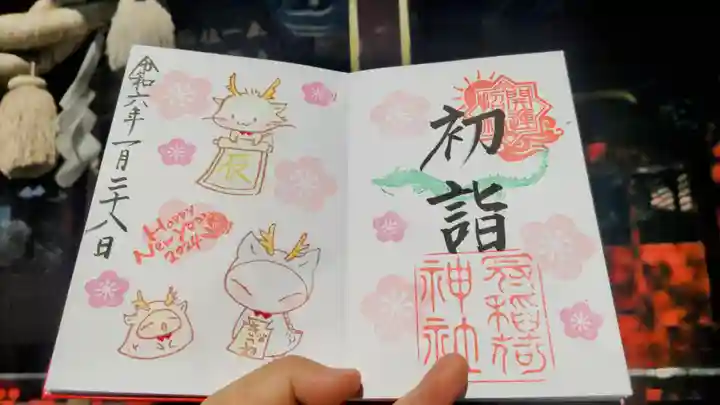 開運
初詣
神社
令和六年一月二十八日
辰
Happy
New Year
2024